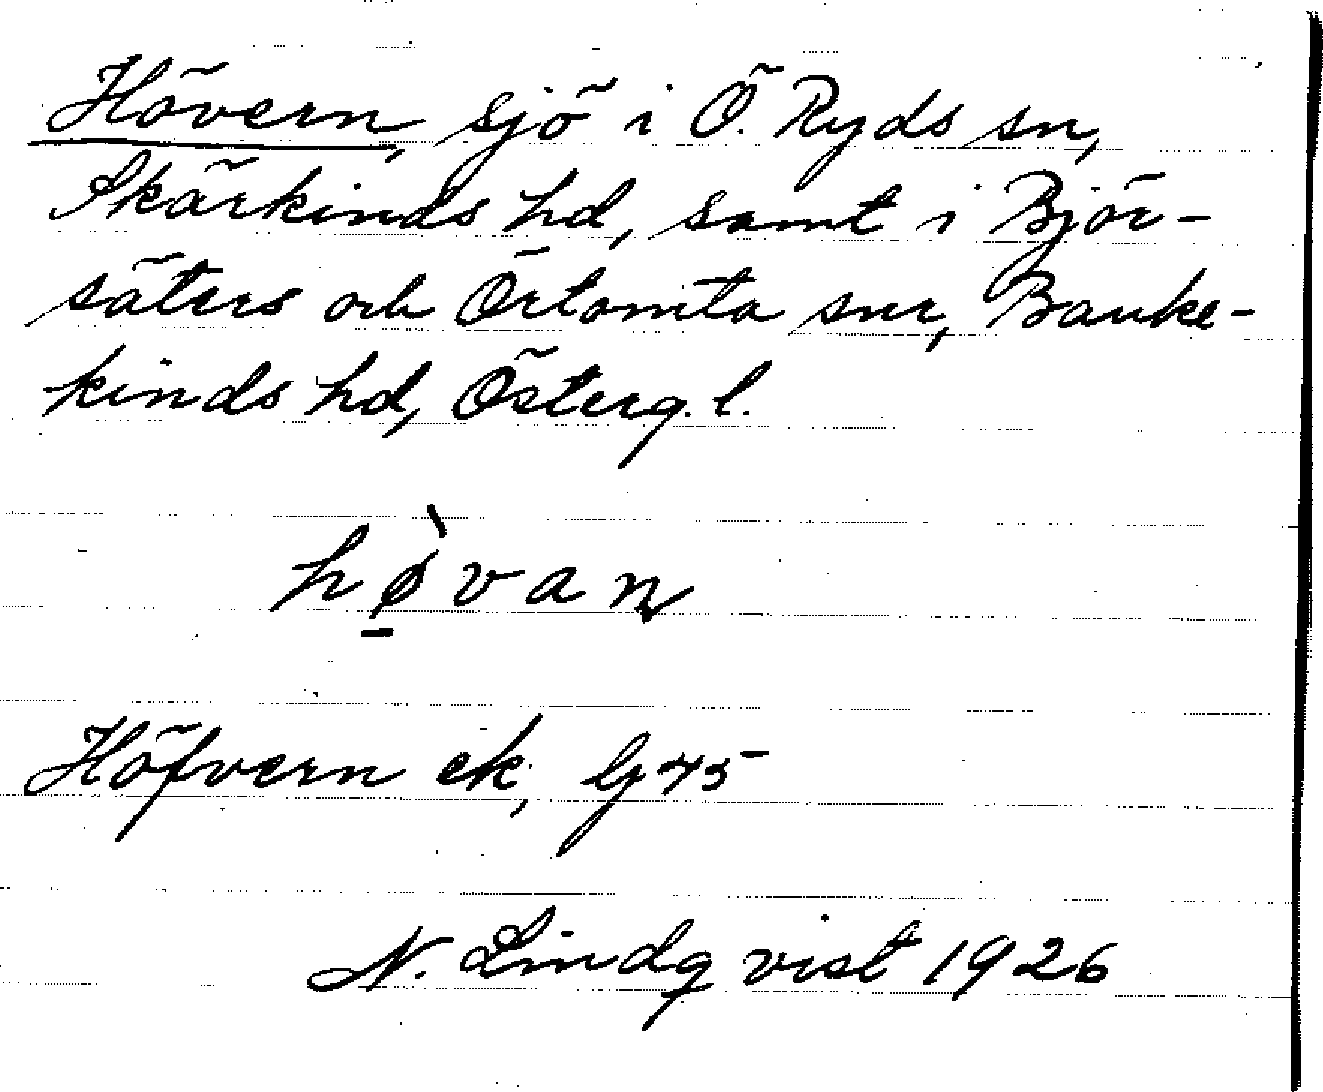 Hövern, sjö i Ö. Ryds sn,
Skärkinds hd, samt i Björ-
säters och Örtomta snr, Banke-
kinds hd, Österg. l.
hø̱̀van
Höfvern ek, G 45
N. Lindqvist 1926